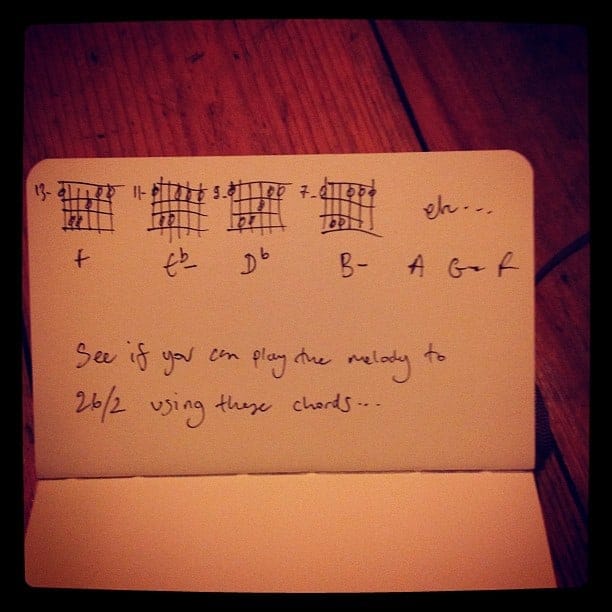 13- 11- 9- 7- etc...
F Eb- Db B- A G- F
See if you can play the melody to
26/2 using these chords...